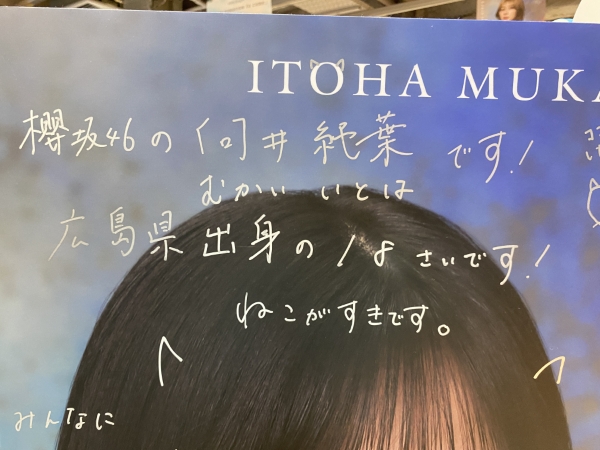 ITOHA MUKA
櫻坂46の向井純葉です!
むかい いとは
広島県出身の18さいです!
ねこがすきです。
みんなに